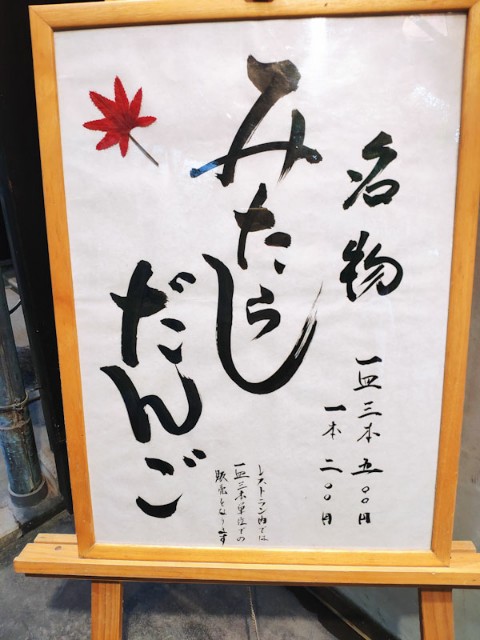 名物
みたらし
だんご
一皿三本 五〇〇円
一本 二〇〇円
レストラン内では
一皿三本単位での
販売となります